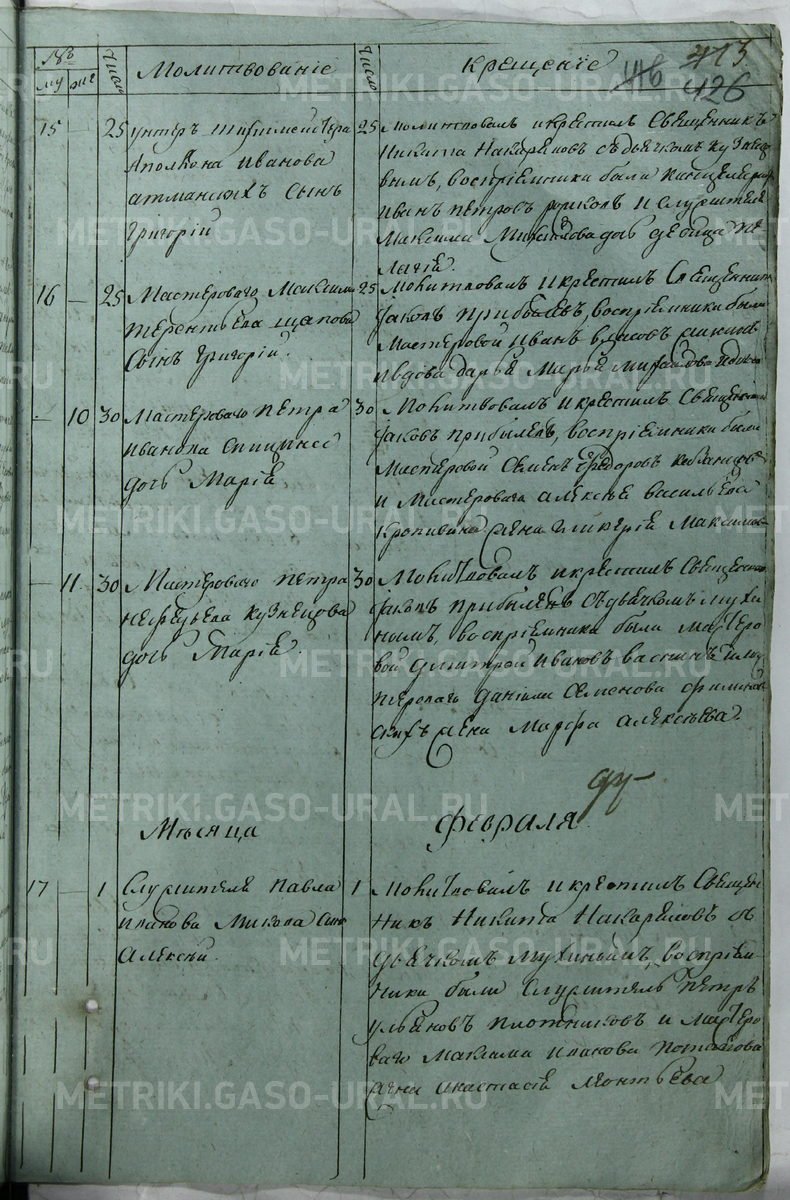 №
му же Число Молитвованіе Число крещеніе 413
116 426
15 — 25 унтеръ шихтмейстера
Аполлона Иванова
атманскихъ сынъ
Григорій
25 Молитвовалъ и крестилъ Священникъ
Никита Накаряковъ съ дьячкомъ кузнецо
вымъ, воспріемники были
Иванъ Петровъ и служителя
Максима дочь девица пе
лагія.
16 — 25 Мастероваго Максима
терентьева щапова
Сынъ Григорій.
25 Молитвовалъ и крестилъ Священникъ
Яковъ Прибылевъ, воспріемники были
Мастеровой Иванъ власовъ
вдова дарья
— 10 30 Мастероваго Петра
Иванова спицина
дочь Марія.
30 Молитвовалъ и крестилъ Священникъ
Яковъ прибылевъ, воспріемники были
Мастеровой Семенъ Федоровъ
и Мастероваго алексея васильева
кропивина жена гликерія Максимова
— 11. 30 Мастероваго Петра
кузнецова
дочь Марія.
30 Молитвовалъ и крестилъ Священникъ
Яковъ прибылевъ съ дьячкомъ мухи
нымъ, воспріемники были Мастеро
вой дмитрей Ивановъ васкинъ и мас
тероваго даніила Семенова
жена Марфа алексеева.
Месяца февраля
17 — 1 Служителя Павла
Иванова Микова сынъ
Алексей.
1 Молитвовалъ и крестилъ Священ
никъ Никита Накаряковъ съ
дьячкомъ Мухинымъ, воспріем
ники были служитель Петръ
ульяновъ плотниковъ и мастеро
ваго Максима иванова потапова
жена анастасія леонтьева
METRIKI.GASO-URAL.RU